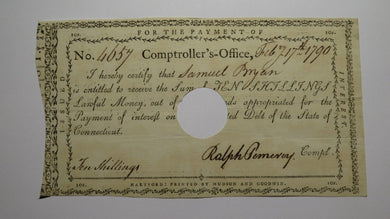 10s. FOR THE PAYMENT OF 10s.
No. 4657 Comptroller's-Office, Feby 17th 1790
I hereby certify that Samuel Bryan
is entitled to receive the Sum of TEN SHILLINGS
Lawful Money, out of ds appropriated for the
Payment of interest on ted Debt of the State of
Connecticut.
Ten Shillings Ralph Pomeroy Compt.
10s. HARTFORD: PRINTED BY HUDSON AND GOODWIN. 10s.
ISSUED
INTEREST